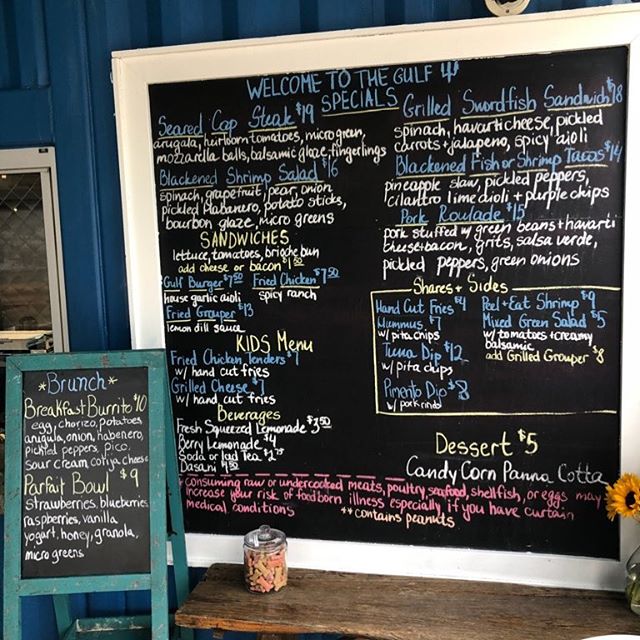 WELCOME TO THE GULF
SPECIALS
Seared Cap Steak $19
arugala, heirloom tomatoes, micro green,
mozzarella balls, balsamic glaze, fingerlings
Blackened Shrimp Salad $16
spinach, grapefruit, pear, onion
pickled Habanero, potato sticks,
bourbon glaze, micro greens
SANDWICHES
lettuce, tomatoes, brioche bun
add cheese or bacon $1.50
Gulf Burger $7.50 Fried Chicken $7.50
house garlic aioli spicy ranch
Fried Grouper $13
lemon dill sauce
KIDS Menu
Fried Chicken Tenders $7
w/ hand cut fries
Grilled Cheese $7
w/ hand cut fries
Beverages
Fresh Squeezed Lemonade $3.50
Berry Lemonade $4
Soda or Iced Tea $2.75
Dasani
Grilled Swordfish Sandwich $18
spinach, havarti cheese, pickled
carrots + jalapeno, spicy aioli
Blackened Fish or Shrimp Tacos $14
pineapple slaw, pickled peppers,
cilantro lime aioli + purple chips
Pork Roulade $15
pork stuffed w/ green beans + havarti
cheese + bacon, grits, salsa verde,
pickled peppers, green onions
Shares + Sides
Hand Cut Fries $4
Hummus $7
w/ pita chips
Tuna Dip $12
w/ pita chips
Pimento Dip $8
w/ pork rinds
Peel + Eat Shrimp $9
Mixed Green Salad $5
w/ tomatoes + creamy
balsamic
add Grilled Grouper $8
Dessert $5
Candy Corn Panna Cotta
* consuming raw or undercooked meats, poultry, seafood, shellfish, or eggs may
increase your risk of foodborn illness especially if you have curtain
medical conditions
** contains peanuts
*Brunch*
Breakfast Burrito $10
egg, chorizo, potatoes
arugula, onion, habenero,
pickled peppers, pico,
sour cream cotija cheese
Parfait Bowl $9
strawberries, blueberries
raspberries, vanilla
yogurt, honey, granola,
micro greens